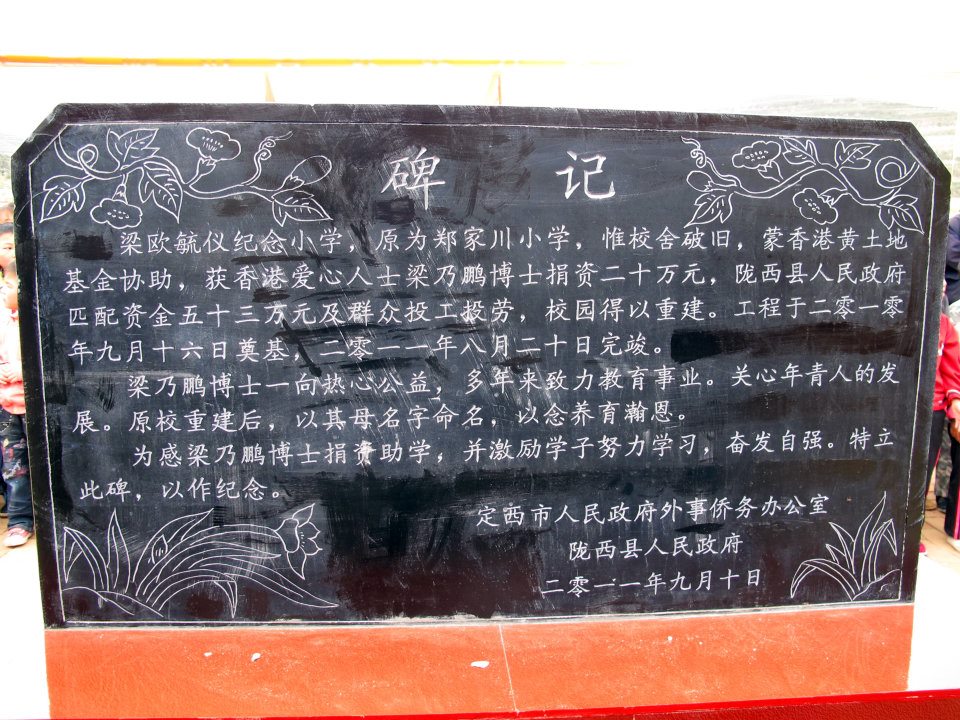 碑记
梁欧毓仪纪念小学，原为郑家川小学，惟校舍破旧，蒙香港黄土地
基金协助，获香港爱心人士梁乃鹏博士捐资二十万元，陇西县人民政府
匹配资金五十三万元及群众投工投劳，校园得以重建。工程于二零一零
年九月十六日奠基，二零一一年八月二十日完竣。
梁乃鹏博士一向热心公益，多年来致力教育事业。关心年青人的发
展。原校重建后，以其母名字命名，以念养育瀚恩。
为感梁乃鹏博士捐资助学，并激励学子努力学习，奋发自强。特立
此碑，以作纪念。
定西市人民政府外事侨务办公室
陇西县人民政府
二零一一年九月十日